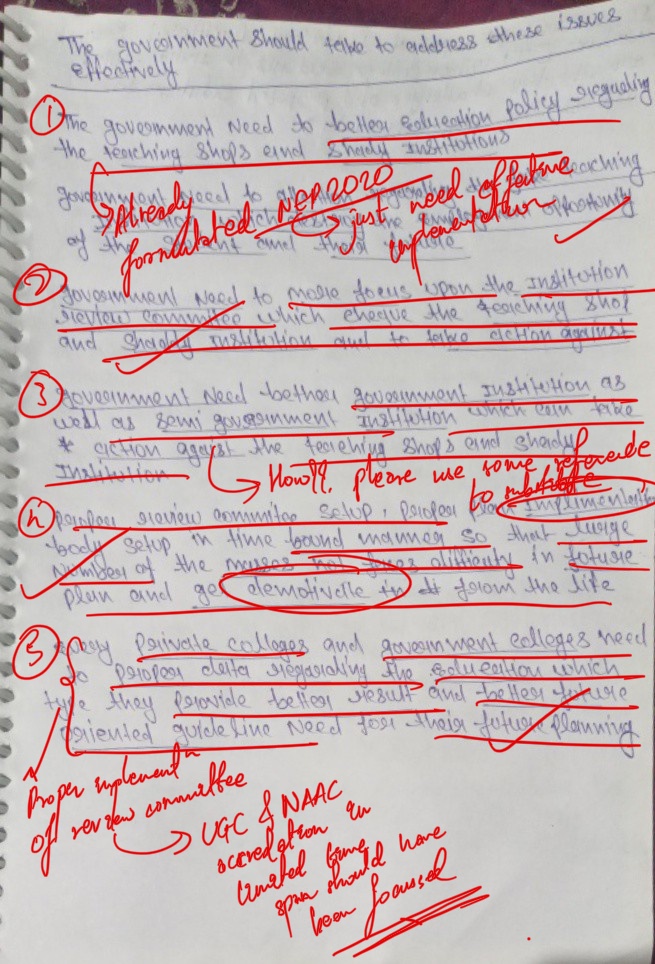 The government should take to address these issues
effectively
① The government Need to better Education policy regarding
the teaching shops and shady institutions
government need to regarding the teaching
which the opportunity
of the student and their
→ Already
formulated NEP 2020
→ just need effective
implementation
② government Need to more focus upon the Institution
review committee which cheque the teaching shop
and shaddy institution and to take action against
③ government Need bether government Institution as
well as semi government institution which can take
* action against the teaching shops and shady
Institution
→ How??. please use some reference
to substitute
4 proper review commitee setup, proper Implimentation
body setup in time bound manner so that large
Number of the masses not faces difficulty in future
plan and get demotivate in it from the life
⑤ private colleges and government colleges need
to proper data regarding the education which
type they provide better result and better future
oriented guideline Need for their future planning
Proper implementn
of review committee
→ UGC & NAAC
accredation in
limited time
span should have
been focussed